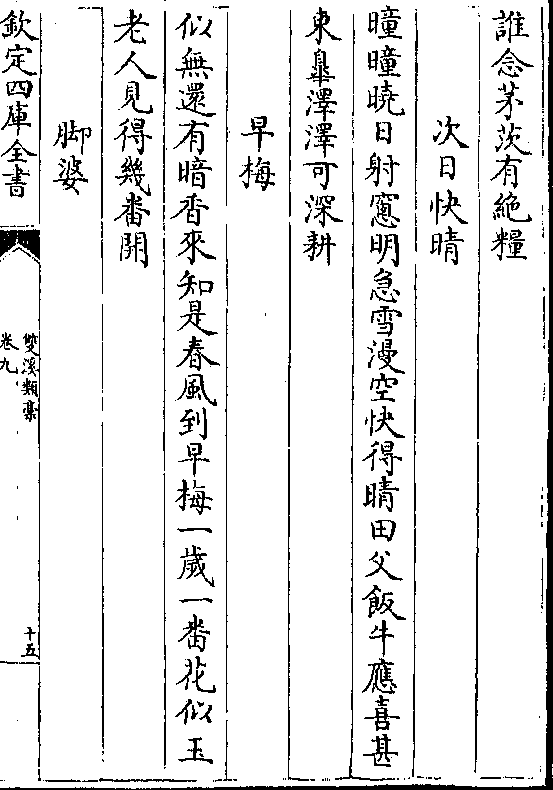 誰念茅茨有絶糧
次日快晴
曈曈曉日射窻明急雪漫空快得晴田父飯牛應喜甚
東臯澤澤可深耕
早梅
似無還有暗香來知是春風到早梅一歲一番花似玉
老人見得幾番開
脚婆
欽定四庫全書
雙溪類藳
卷九
十五